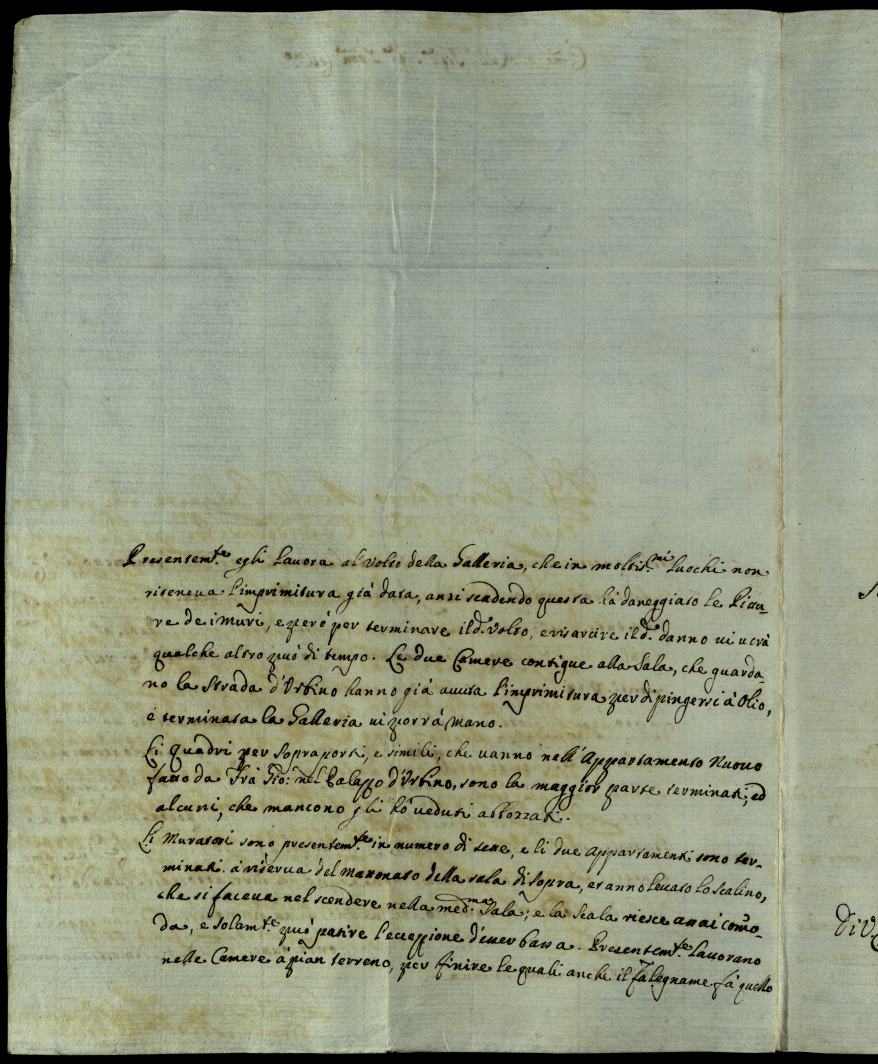 Presentem.te egli lavora al volto della Galleria, che in moltis.mi luochi non
riceneva l'imprimitura già data, anzi scadendo questa hà daneggiato le Pittu-
re de i muri, e però per terminare il d.o volto, e risarcire il d.o danno ui uorà
qualche altro puó di tempo. Le due Camere contigue alla Sala, che guarda-
no la Strada d'Urbino hanno già auuta l'imprimitura per dipingersi à Olio,
e terminata la Galleria ui porrà mano.
Li quadri per sopraporti, e simili, che uanno nell'Appartamento Nuouo
fatto da Frà Gio: nel Palazzo d'Urbino, sono la maggior parte terminati; ed
alcuni, che mancono gli hò ueduti abbozzati.
Li Muratori sono presentem.te in numero di sette, e li due Appartamenti sono ter-
minati. à riserua del mattonato della sala di sopra, et anno leuato lo scalino,
che si faceua nel scendere nella med.ma Sala; e la scala riesce assai como-
da, e solam.te può patire l'eccezzione d'esser bassa. Presentem.te lauorano
nelle Camere à pian terreno, per finire le quali anche il falegname fà quello